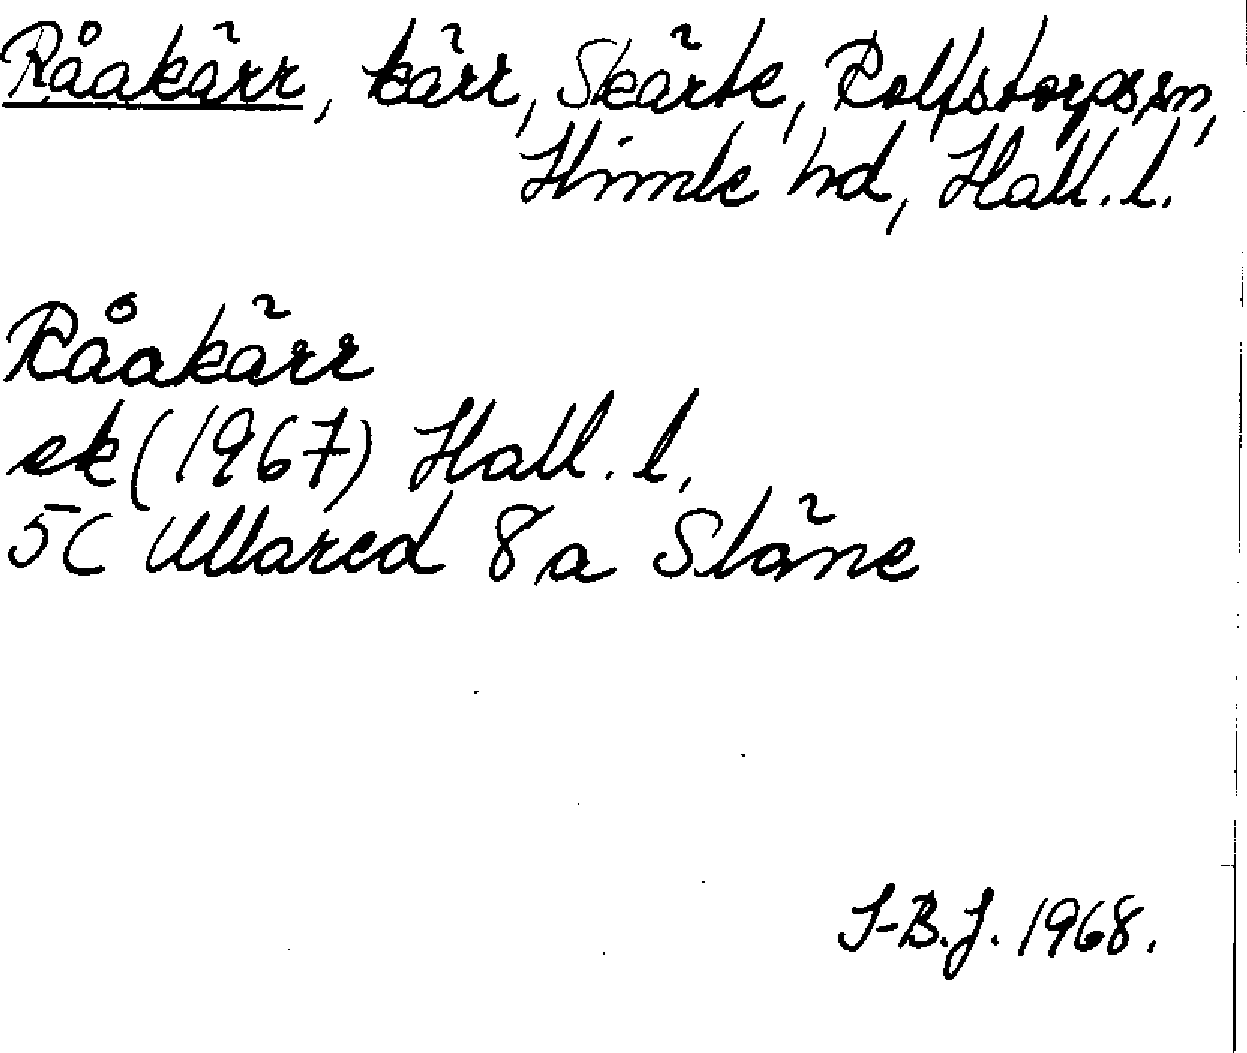 Råakärr, kärr, Skärte, Rolfstorps sn,
Himle hd, Hall. l.
Råakärr
ek (1967) Hall. l.
5C Ullared 8 a Släne
I-B.J. 1968.